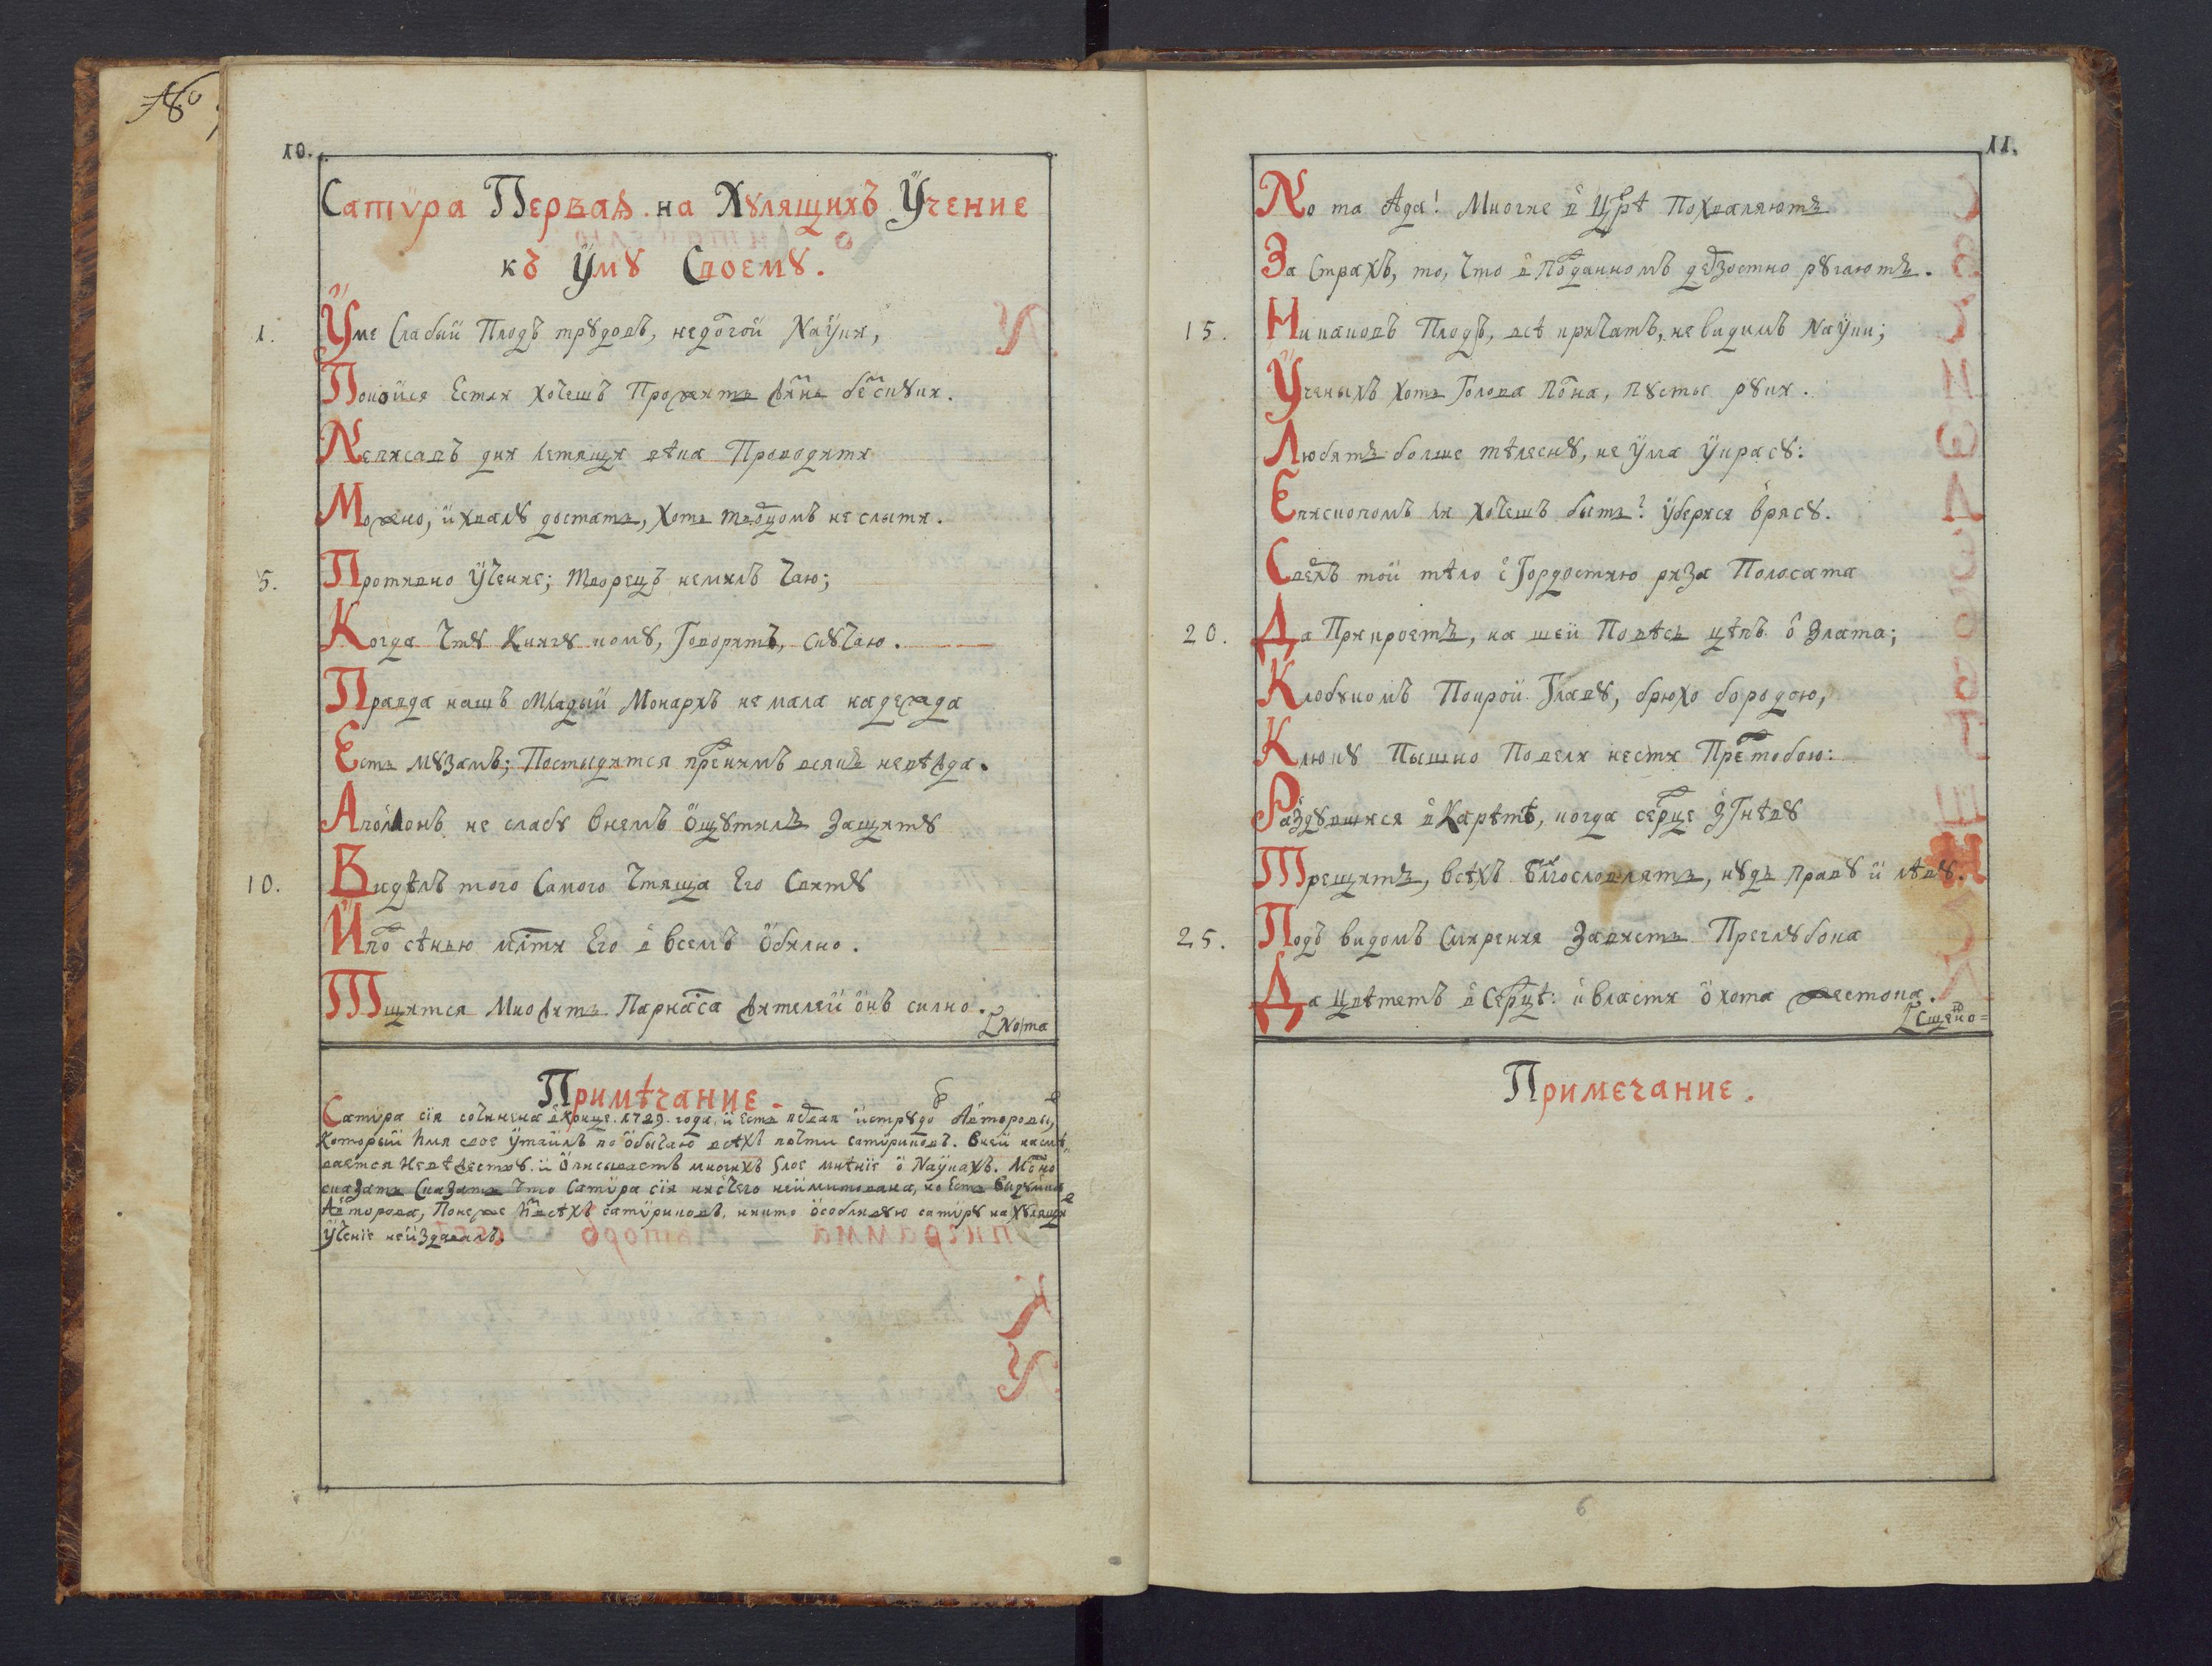 No
10.
Сатѵра Первая на Хꙋлящихъ Учение
къ Умꙋ Своемꙋ.
1. Уме Слабыи Плодъ трꙋдовъ, недогой Науки,
Покойся Естли хочешъ Прожить жизнь бес скꙋки.
Неписавъ дни летящи вѣка Проводити
Можно, и хвалꙋ достать, хоть творцомъ не слыти.
5. Противно Учение; творецъ немилъ чаю;
Когда Чтꙋ Книгꙋ комꙋ, Говоритъ, скꙋчаю.
Правда нашъ Младыи Монархъ не мала надежда
Есть мꙋзамъ; Постыдится пренимъ всякъ невѣжда.
Аполлонъ не слабꙋ внемъ Ощꙋтилъ Защитꙋ
10. Видѣлъ того Самого Чтяща Его Свитꙋ
И по сѣнью млсти Его в всемъ Обилно.
Тщится Множить Парнасса жителей онъ силно.
[Но/та
Примѣчание.
Сатѵра сія сочинена вкрице. 1729. года, и Есть первая истрꙋдовъ Авторовы,
Которыи Имя свое Утаилъ по обычаю всѣхъ почти сатѵриковъ. Внеи насмѣ-
вается Невѣжествꙋ. и Описываетъ многихъ Ѕлое мнѣніе о Наукахъ. Можно
сказать Сказать Что Сатѵра сія нисчего неимитована, но Есть Видꙋмка
Авторова, Понеже Ивсѣхъ сатѵриковъ, никто особливꙋю сатѵрꙋ на хꙋлящихъ
Ученіе неиздавалъ.
11.
Но та бѣда! Многие в Црѣ Похваляютъ
За Страхъ, то, Что в поданномъ дерзостно рꙋгаютъ.
15. Никаковъ Плодъ, всѣ кричатъ, не видимъ Науки;
Ученыхъ хоть Голова полна, пꙋсты рꙋки.
Любятъ болше тѣлеснꙋ, не Ума Украсꙋ:
Епископомъ ли хочешъ быть? Уберися врясꙋ.
Сверхъ тои тѣло с Гордостию риза Полосата
20. Да Прикроетъ, на шеи Повѣсь цѣпъ о Злата;
Клобꙋкомъ Покрой Главꙋ, брюхо бородою,
Клюкꙋ Пышно Повели нести Претобою:
Раздꙋвшися вКаретѣ, когда серце з Гнѣвꙋ
Трещитъ, всѣхъ блгословлять, нꙋдь правꙋ и лѣвꙋ.
25. Подъ видомъ Смирения Зависть Преглꙋбока
Да Цвѣтетъ в Серцѣ: и власти Охота жестока.
[Сщено=
Примечание.
6